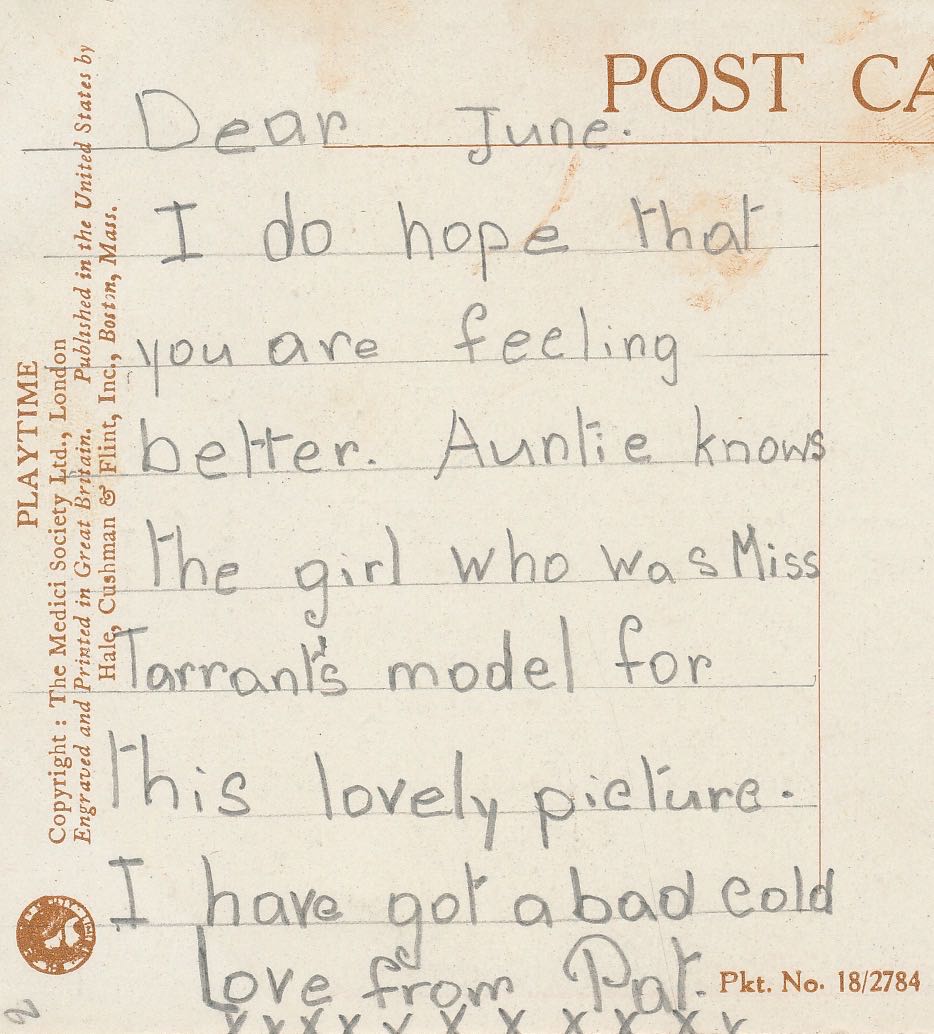 POST CA
Dear June.
I do hope that
you are feeling
better. Auntie knows
the girl who was Miss
Tarrant's model for
this lovely picture.
I have got a bad cold
Love from Pat.
x x x x x x x x x x x
Pkt. No. 18/2784
PLAYTIME
Copyright : The Medici Society Ltd., London
Engraved and Printed in Great Britain. Published in the United States by
Hale, Cushman & Flint, Inc., Boston, Mass.
2